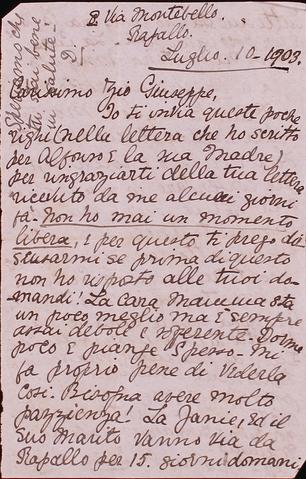 2 Via Montebello.
Rapallo.
Luglio. 10 - 1903.
Carissimo Zio Giuseppe,
Io ti invia queste poche
righi (nella lettera che ho scritto
per Alfonso E la sua Madre)
per ringraziarti della tua lettera
ricevuto da me alcuni giorni
fa. Non ho mai un momento
libera, E per questo ti prego di
scusarmi se prima di questo
non ho risposto alle tuoi do-
mandi! La cara Mamma sta
un poco meglio ma E sempre
assai debole E soferente. Dorme
poco E piange Spesso. Mi
fa proprio pene di Vederla
Cosi. Bisogna avere molto
pazzienza! La Janie, Ed il
Suo Marito vanno via da
Rapallo per 15. giorni domani
che
stai bene
salute!